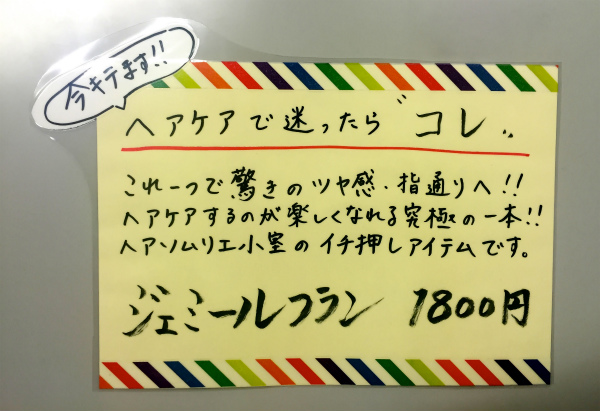 今キテます!!
ヘアケアで迷ったら〝コレ〟
これ一つで驚きのツヤ感・指通りへ!!
ヘアケアするのが楽しくなれる究極の一本!!
ヘアソムリエ小室のイチ押しアイテムです。
ジェミールフラン 1800円